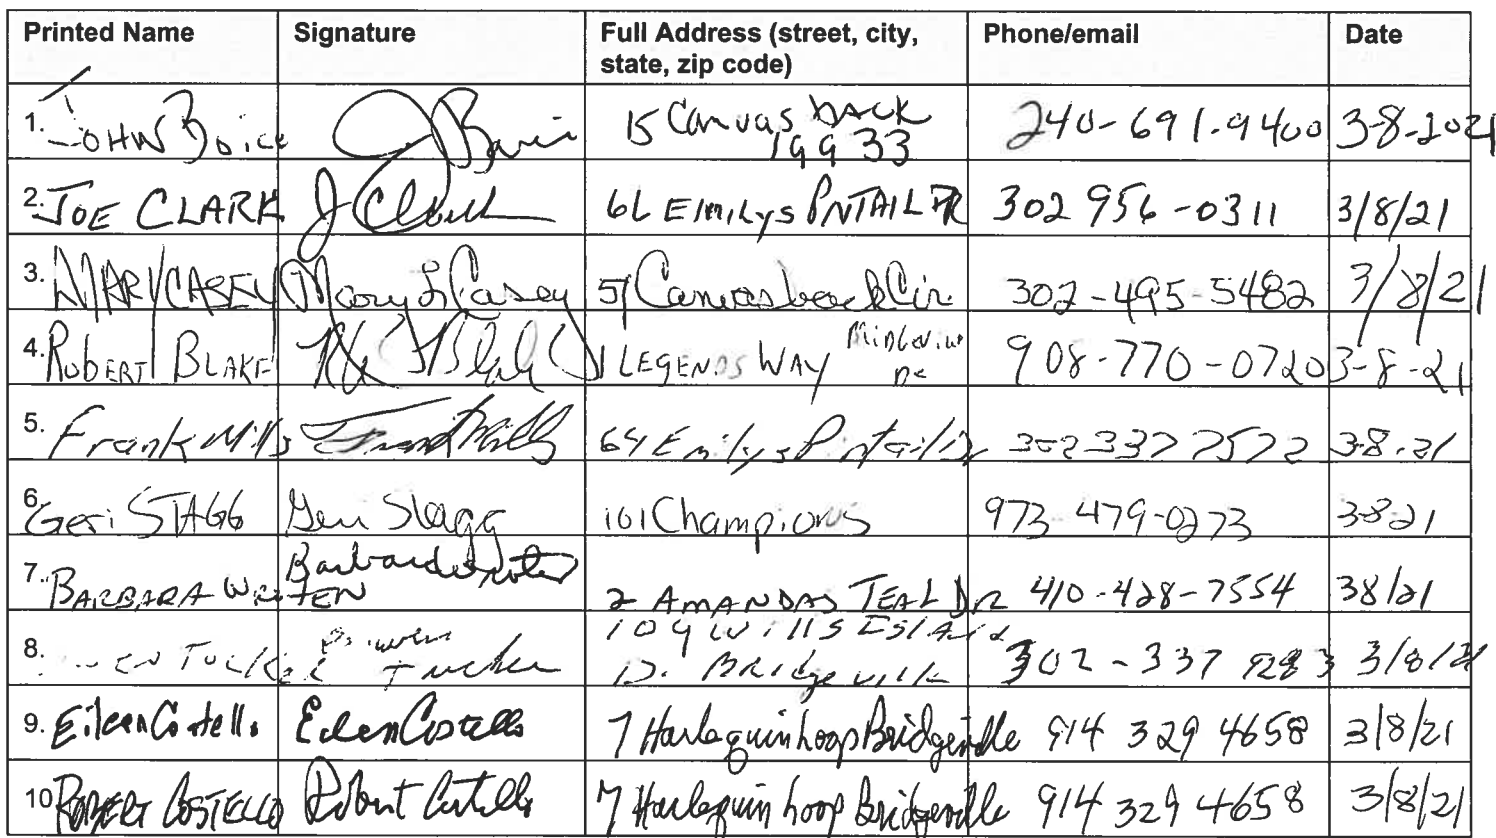 Printed Name Signature Full Address (street, city, state, zip code) Phone/email Date
1. JOHN Boice J Boice 15 Canvas BACK 19933 240-691-9400 3-8-2021
2. JOE CLARK J Clark 66 Emilys PNTAIL DR 302 956-0311 3/8/21
3. MARY CASEY Mary L Casey 51 Canvasback Cir 302-495-5482 3/8/21
4. ROBERT BLAKE 1 LEGENDS WAY De 908-770-0720 3-8-21
5. Frank Mills Frank Mills 64 Emilys Pintail Dr 302 337 7572 3-8-21
6. Geri STAGG Geri Stagg 101 Champions 973 479-0273 3-8-21
7. BARBARA WROTEN Barbara Wroten 2 AMANDAS TEAL DR 410-428-7554 38/21
8. TUCKER Tucker 109 Wills Island D. Bridgeville 302-337 9283 3/8/21
9. Eileen Costello Eileen Costello 7 Harlequin Loop Bridgeville 914 329 4658 3/8/21
10 ROBERT COSTELLO Robert Costello 7 Harlequin Loop Bridgeville 914 329 4658 3/8/21